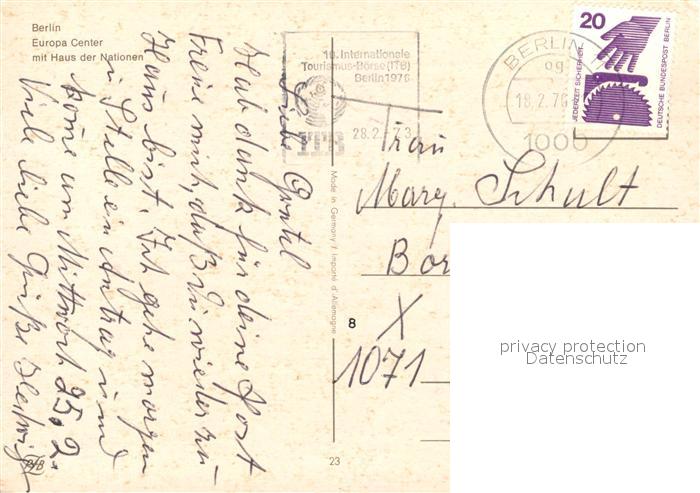 Berlin
Europa Center
mit Haus der Nationen
10. Internationale
Tourismus-Börse (ITB)
Berlin 1976
28.2.-7.3
ITB
BERLIN
18.2.76
1000
20
JEDERZEIT SICHERHEIT
DEUTSCHE BUNDESPOST BERLIN
Liebe Gretel
Hab dank für deine Post
Freue mich, daß du wieder zu
Haus bist. Ich gehe morgen
in Stelle ein Antrag und
komme am Mittwoch 25.2.
Viele liebe Grüße Hedwig
Made in Germany / Importé d'Allemagne
Frau
Marg. Schult
Bor
8
X
1071
23
privacy protection
Datenschutz